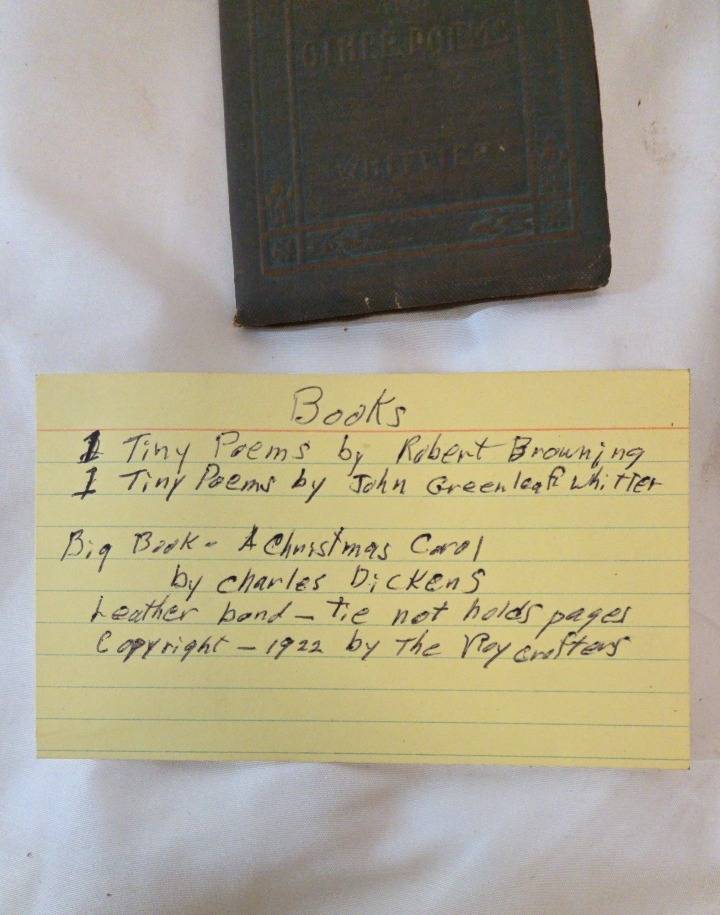 OTHER POEMS
WHITTIER
Books
1 Tiny Poems by Robert Browning
1 Tiny Poems by John Greenleaf Whitter
Big Book - A Christmas Carol
by Charles Dickens
Leather bond - tie not holds pages
Copyright - 1922 by The Roycrofters